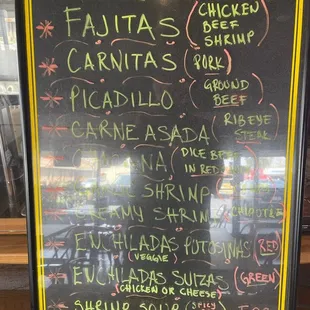 FAJITAS (CHICKEN
BEEF
SHRIMP
CARNITAS (PORK)
PICADILLO (GROUND
BEEF
CARNE ASADA (RIBEYE
STEAK
(DICE
IN RED
SHRIMP
CREAMY SHRIMP CHIPOTLE
ENCHILADAS POTOSINAS (RED)
(VEGGIE)
ENCHILADAS SUIZAS (GREEN)
(CHICKEN OR CHEESE)
SHRIMP SOUP (SPICY